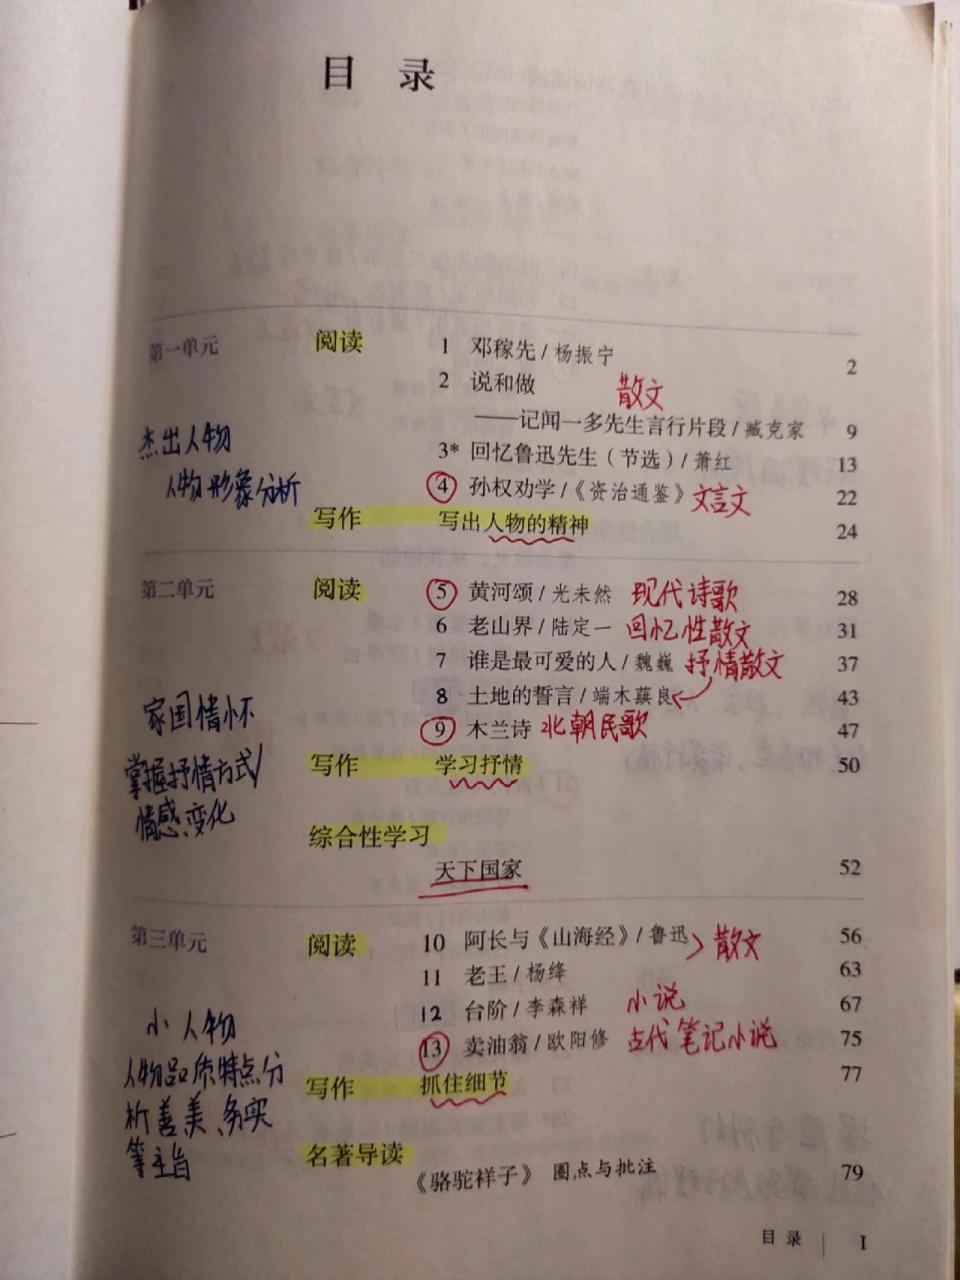 目 录
第一单元 阅读 1 邓稼先/杨振宁 2
2 说和做 散文
——记闻一多先生言行片段/臧克家 9
杰出人物
3* 回忆鲁迅先生（节选）/萧红 13
人物形象分析
4 孙权劝学/《资治通鉴》 文言文 22
写作 写出人物的精神 24
第二单元 阅读 5 黄河颂/光未然 现代诗歌 28
6 老山界/陆定一 回忆性散文 31
7 谁是最可爱的人/魏巍 抒情散文 37
8 土地的誓言/端木蕻良 43
家国情怀
9 木兰诗 北朝民歌 47
掌握抒情方式/
情感变化
写作 学习抒情 50
综合性学习
天下国家 52
第三单元 阅读 10 阿长与《山海经》/鲁迅 散文 56
11 老王/杨绛 63
12 台阶/李森祥 小说 67
小人物
13 卖油翁/欧阳修 古代笔记小说 75
人物品质特点分
析善美、务实
等主旨
写作 抓住细节 77
名著导读
《骆驼祥子》 圈点与批注 79
目录 I